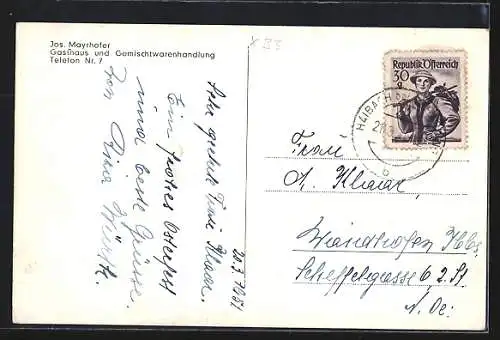 Jos. Mayrhofer
Gasthaus und Gemischtwarenhandlung
Telefon Nr. 7
x 33
20.3.1951
Sehr geehrte Frau Klaar.
Ein frohes Osterfest
und beste Grüsse.
von
Republik Österreich
30
g
HAIBACH
b
Frau
A. Klaar
Waidhofen Ybbs
Scheffelgasse 6, 2. St
N. Oe.